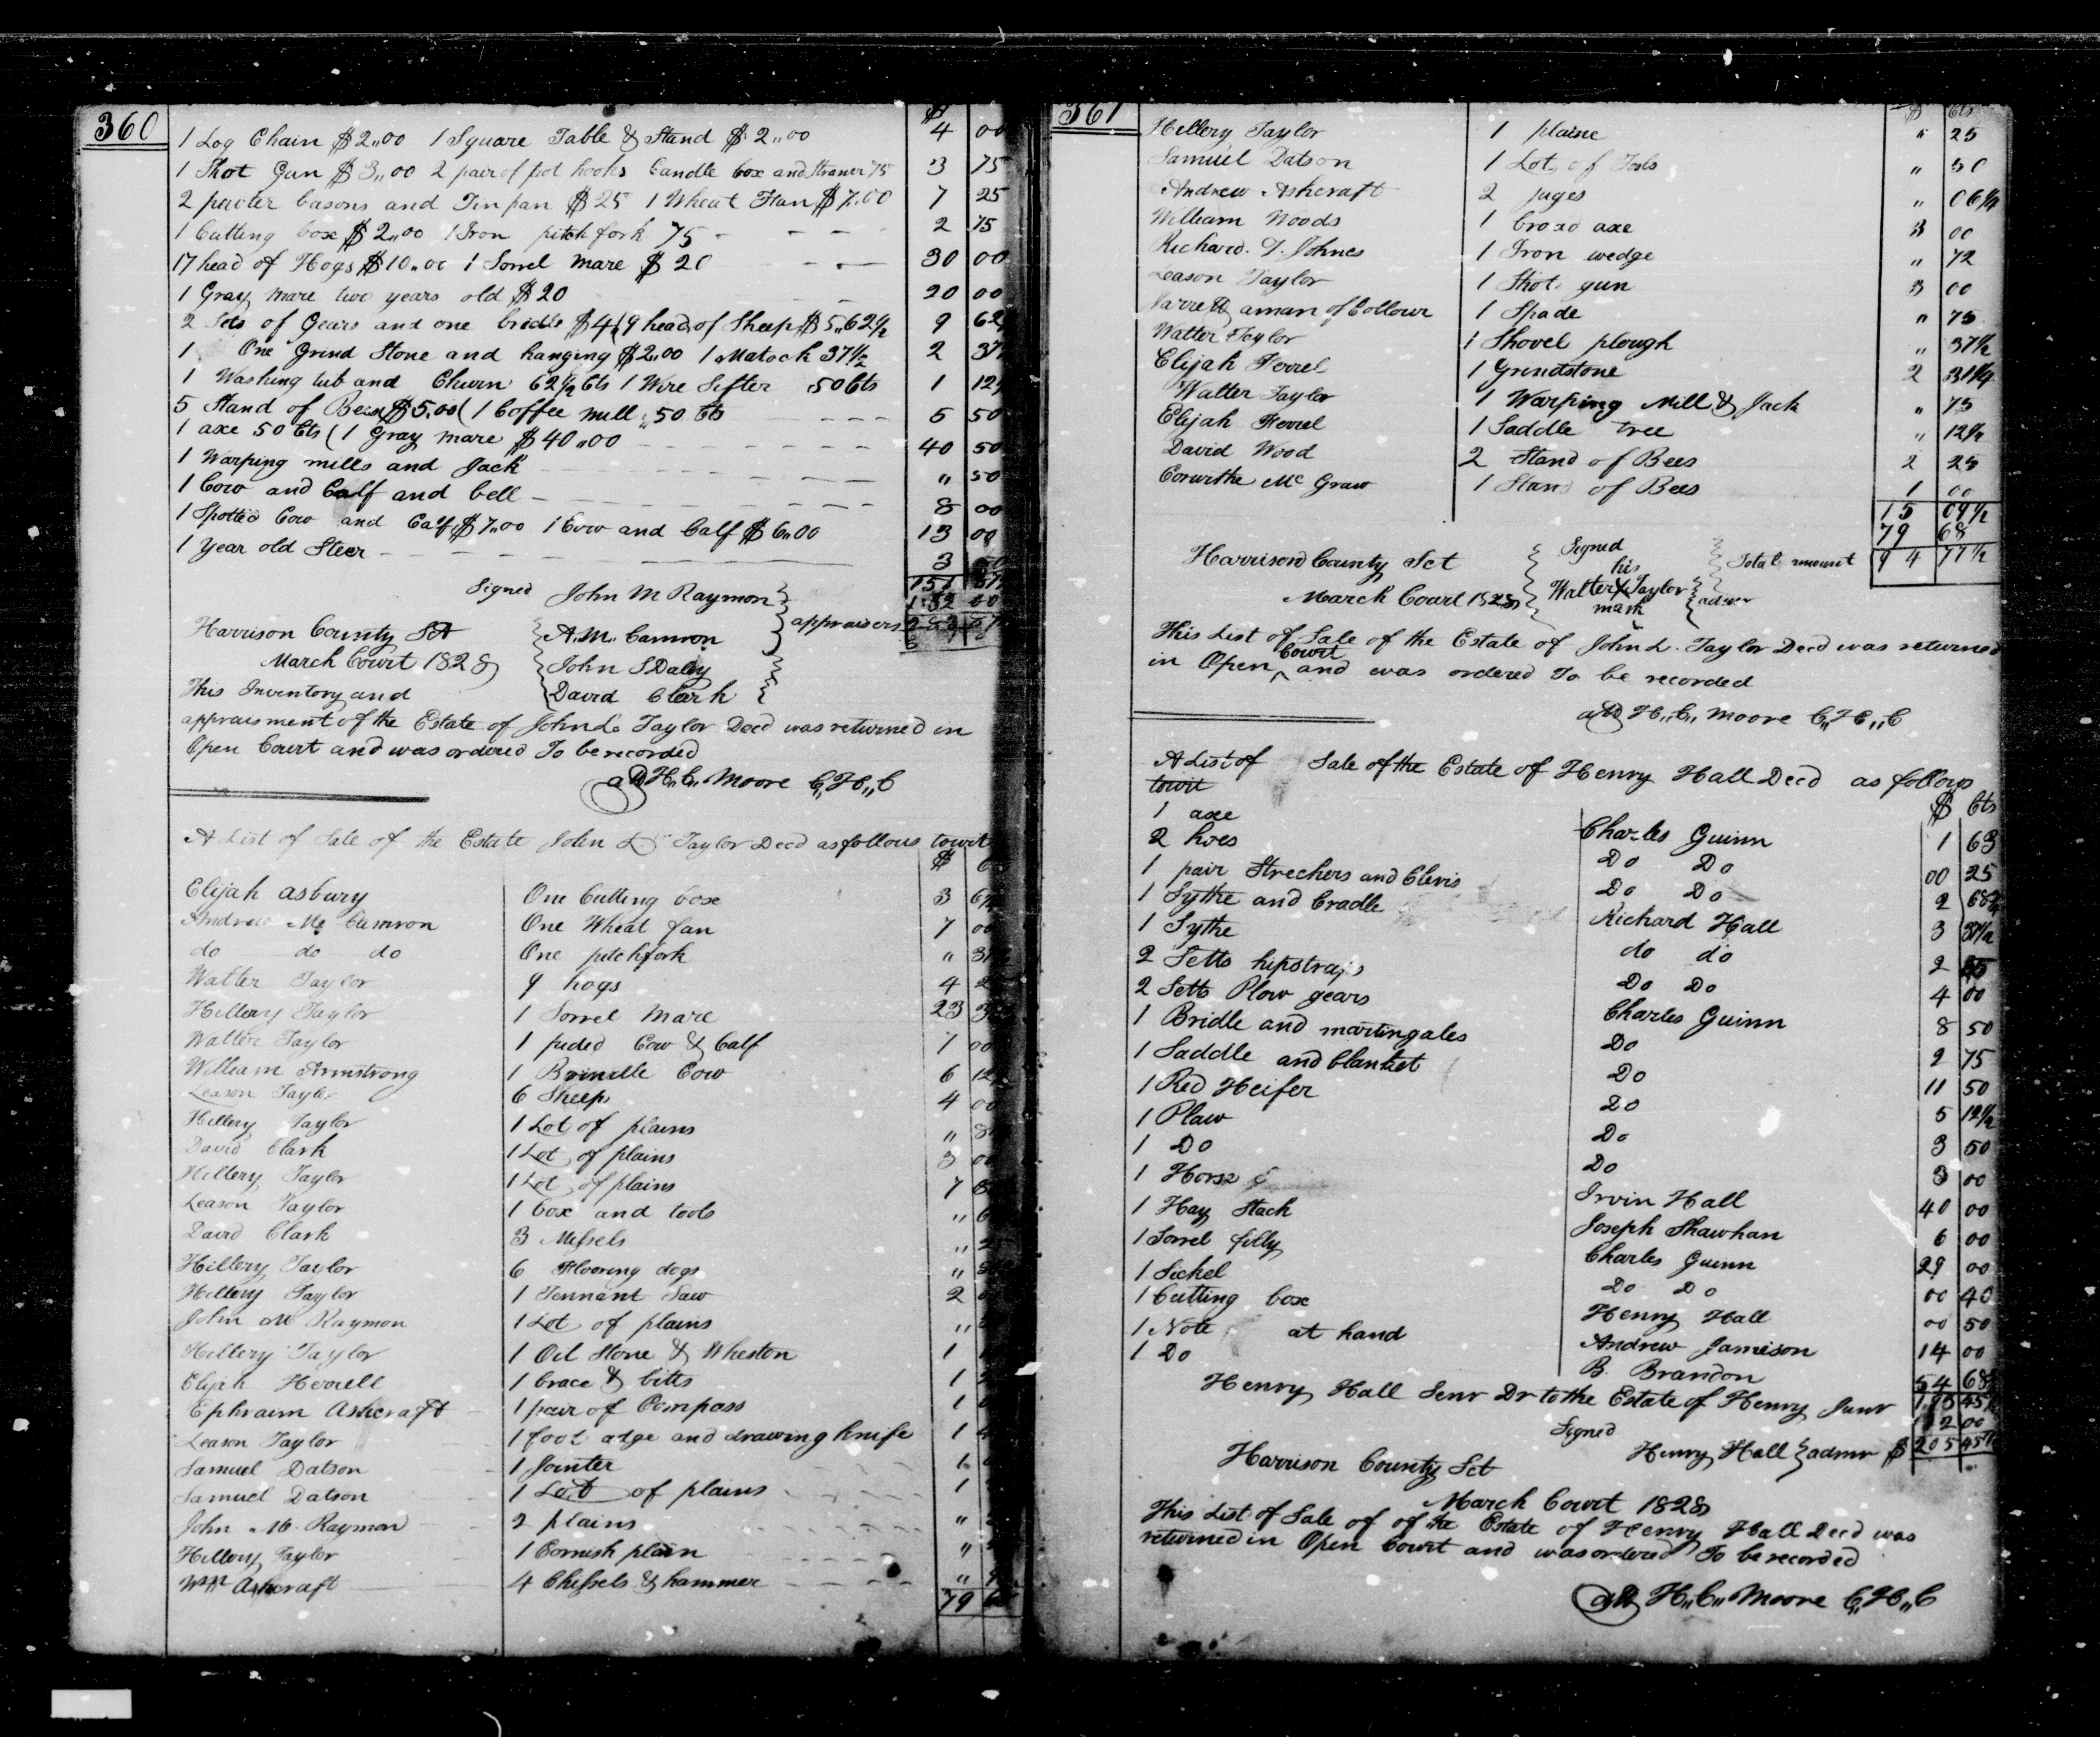 360
$
1 Log Chain $2,,00 1 Square Table & Stand $2,,00 4 00
1 Shot Gun $3,,00 2 pair of pot hooks Candle box and Straner 75 3 75
2 pewter basons and Tin pan $25 1 Wheat Fan $7.00 7 25
1 Cutting box $2,,00 1 Iron pitch fork 75 - - - - 2 75
17 head of Hogs $10,,00 1 Sorrel mare $20 - - - 30 00
1 Gray mare two years old $20 - - 20 00
2 Sets of Gears and one bridle $4 ( 9 head of Sheep $5,,62½ 9 62
1 One Grind Stone and hanging $2,,00 1 Matock 37½ 2 37
1 Washing tub and Churn 62½ Cts 1 Wire Sifter 50 Cts 1 12
5 Stand of Bees $5,00 ( 1 Coffee mill ,50 Cts - - - 5 50
1 axe 50 Cts ( 1 Gray mare $40,,00 - - - - 40 50
1 Warping mills and Jack - - - - ,, 50
1 Cow and Calf and bell - - - - 8 00
1 Spotted Cow and Calf $7,,00 1 Cow and Calf $6,,00 13 00
1 Year old Steer - - - - 3
Signed John M Raymon
Harrison County Sct A. M. Camron appraisers
March Court 1828 John S Daley
This Inventory and David Clark
appraisment of the Estate of John L. Taylor Decd was returned in
Open Court and was ordered To be recorded
att H,,C,, Moore C,,H,,C
A List of Sale of the Estate John L Taylor Decd as follows towit
$
Elijah Asbury One Cutting box 3
Andrew Mc Camron One Wheat fan 7 00
do do do One pitchfork ,,
Walter Taylor 9 hogs 4
Hillery Taylor 1 Sorrel Mare 23
Walter Taylor 1 pided Cow & Calf 7 00
William Armstrong 1 Brindle Cow 6 12
Leason Taylor 6 Sheep 4 00
Hillery Taylor 1 Lot of plains ,,
David Clark 1 Lot of plains 3 00
Hillery Taylor 1 Lot of plains
Leason Taylor 1 box and tools ,,
David Clark 3 ,,
Hillery Taylor 6 Flooring dogs ,,
Hillery Taylor 1 Tennant Saw 2
John M Raymon 1 Lot of plains ,,
Hillery Taylor 1 Oil Stone & Wheston 1
Elijah Herrell 1 brace & bitts 1
Ephraim Ashcraft 1 pair of Compass 1
Leason Taylor 1 foot adge and drawing knife 1
Samuel Datson 1 Jointer
Samuel Datson 1 Lot of plains 1
John M. Raymon 2 plains ,,
Hillery Taylor 1 Cornish plain ,,
Wm Ashcraft 4 Chissels & hammer - - - - ,,
79
361
$ Cts
Hillery Taylor 1 plaine ,, 25
Samuel Datson 1 Lot of Tools ,, 50
Andrew Ashcraft 2 juges ,, 06¼
William Woods 1 broad axe 3 00
Richard. T. Johnes 1 Iron wedge ,, 72
Leason Taylor 1 Shot gun 3 00
aman of Collour 1 Spade ,, 75
Walter Taylor 1 Shovel plough ,, 37½
Elijah Ferrel 1 Grindstone 2 31¼
Walter Taylor 1 Warping Mill & Jack ,, 75
Elijah Ferrel 1 Saddle tree ,, 12½
David Wood 2 Stand of Bees 2 25
Corwithe Mc Graw 1 Stand of Bees 1 00
15 09½
79 68
Harrison County Sct Signed Total amount 94 77½
his
March Court 1828 Walter X Taylor admr
mark
This List of Sale of the Estate of John L. Taylor Decd was returned
in Open Court and was ordered To be recorded
att H,,C,, Moore C,,H,,C
A List of Sale of the Estate of Henry Hall Decd as follows
towit $ Cts
1 axe Charles Guinn 1 63
2 hoes Do Do 00 25
1 pair Strechers and Clevis Do Do 2 68¾
1 Sythe and Cradle Richard Hall 3 37½
1 Sythe do do 2
2 Setts hipstraps Do Do 4 00
2 Setts Plow gears Charles Guinn 8 50
1 Bridle and martingales Do 2 75
1 Saddle and blanket Do 11 50
1 Red Heifer Do 5 12½
1 Plaw Do 3 50
1 Do Do 3 00
1 Horse Irvin Hall 40 00
1 Hay Stack Joseph Shawhan 6 00
1 Sorrel filly Charles Guinn 29 00
1 Sickel Do Do 00 40
1 Cutting box Henry Hall 00 50
1 Note at hand Andrew Jamison 14 00
1 Do B. Brandon 54 68
Henry Hall Senr Dr to the Estate of Henry Junr
Signed
Henry Hall admr $ 205 45
Harrison County Sct
March Court 1828
This List of Sale of of the Estate of Henry Hall Decd was
returned in Open Court and was ordered To be recorded
att H,,C,, Moore C,,H,,C